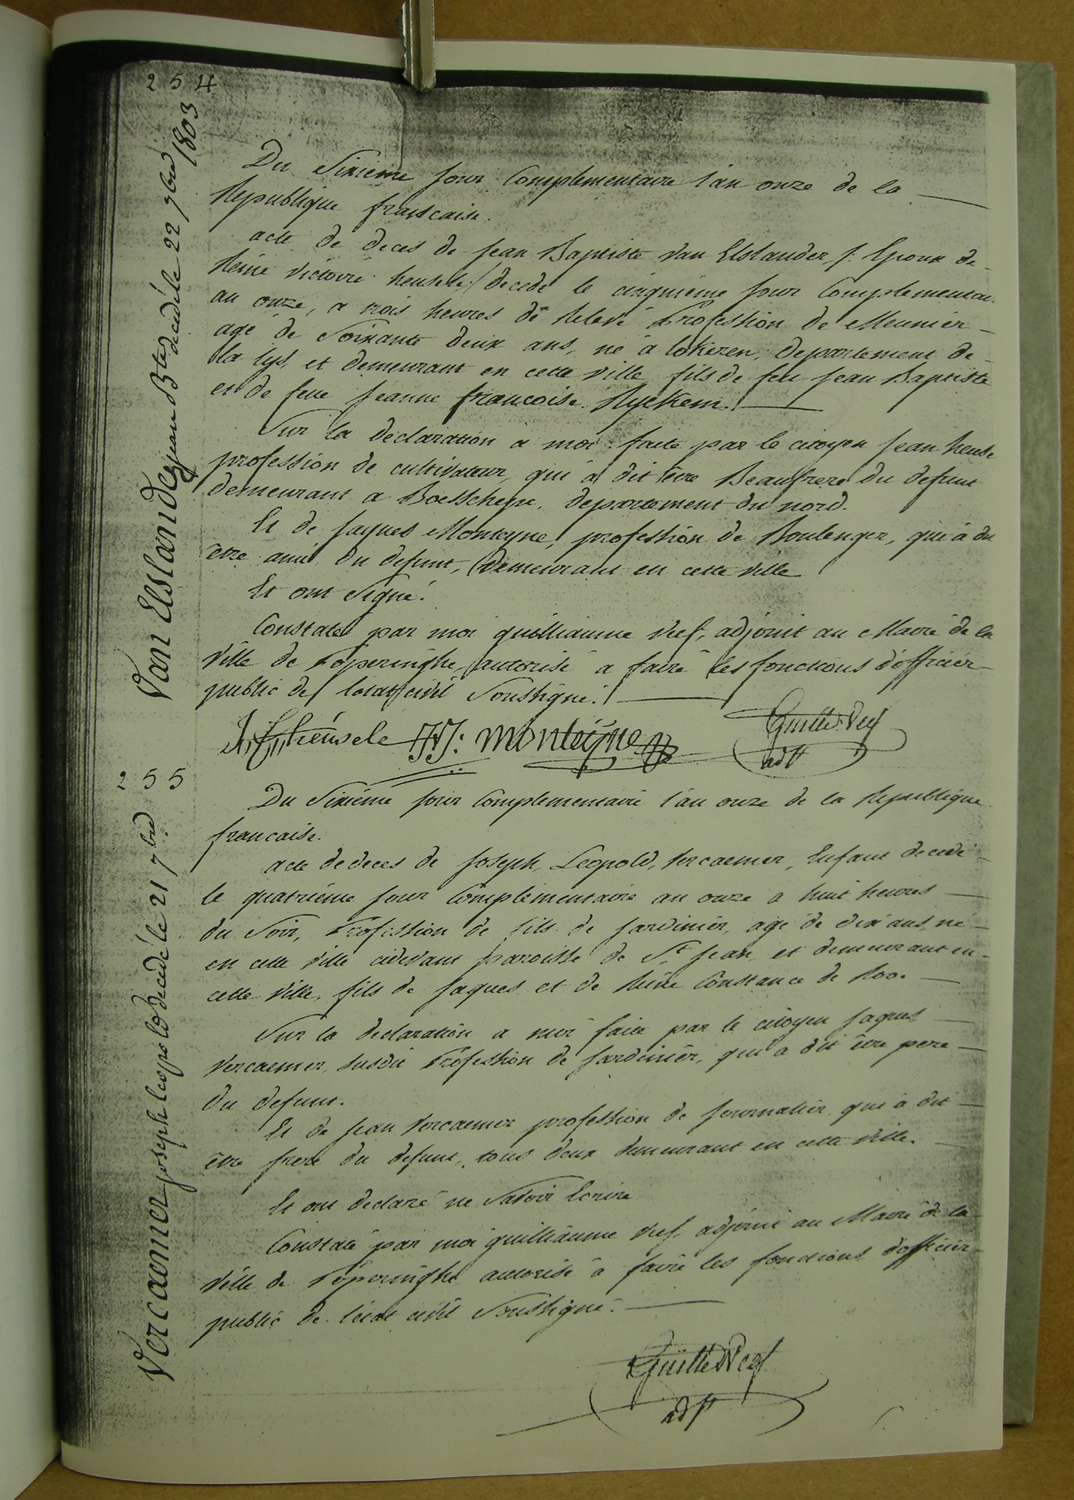 254
Van Elslande jean Bte decedé le 22 7bre 1803
Du Sixieme jour Complementaire l'an onze de la
Republique francaise.
acte de deces de jean Baptiste Van Elslander /: Epoux de
Reine Victoire heusele :/ decedé le cinquieme jour Complementai
an onze, a trois heures de Relevé Profession de Meunier
agé de Soixante deux ans, né a lokeren, departement de
la lys, et demeurant en cette Ville fils de feu jean Baptiste
et de feue jeanne francoise Ryckem.
Sur la declaration a moi faite par le citoyen jean heusele
profession de cultivateur, qui a dit être Beaufrere du defunt
demeurant a Boesschepe, departement du nord.
Et de jaques Monteyne, profession de Boulenger, qui à dit
être ami du defunt, demeurant en cette ville
Et ont Signé.
Constaté par moi guilliaume Vief, adjoint au Maire de la
Ville de Poperinghe, autorisé a faire les fonctions d'officier
public de l'etat civil Soussigné.
heusele JJ: monteÿne
adjt
255
Vercaemer joseph leopold decedé le 21 7bre
Du Sixiéme jour Complementaire l'an onze de la Republique
francaise.
acte de deces de joseph Leopold, Vercaemer, Enfant decedé
le quatriéme jour Complementaire an onze a huit heures
du Soir, Profession de fils de jardinier, agé de dix ans, né
en cette Ville cidevant paroisse de St. jean et demeurant en
cette Ville, fils de jaques et de Reine Constance de Roo.
Sur la declaration a moi faite par le citoyen jaques
Vercaemer, Susdit Profession de jardinier, qui a dit être pere
du defunt.
Et de jean Vercaemer profession de journalier qui à dit
être frere du defunt, tous deux demeurant en cette Ville.
Et ont declaré ne Savoir Ecrire
Constaté par moi guilliaume Vief, adjoint au Maire de la
Ville de Poperinghe autorisé à faire les fonctions d'officier
public de l'etat civil Soussigné.
adjt